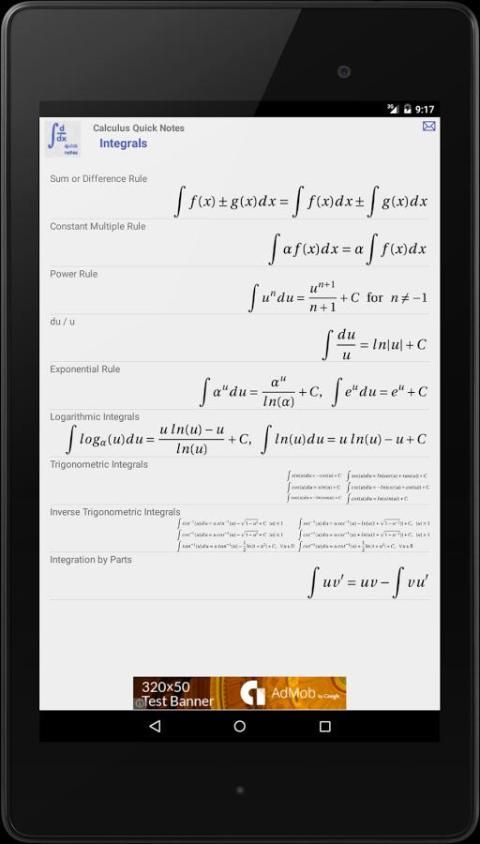 3G 9:17
d
dx
quick
notes
Calculus Quick Notes
Integrals
Sum or Difference Rule
∫ f(x) ± g(x)dx = ∫ f(x)dx ± ∫ g(x)dx
Constant Multiple Rule
∫ αf(x)dx = α ∫ f(x)dx
Power Rule
∫ uⁿdu = uⁿ⁺¹/(n+1) + C for n ≠ −1
du / u
∫ du/u = ln|u| + C
Exponential Rule
∫ αᵘdu = αᵘ/ln(α) + C, ∫ eᵘdu = eᵘ + C
Logarithmic Integrals
∫ logₐ(u)du = (u ln(u) − u)/ln(u) + C, ∫ ln(u)du = u ln(u) − u + C
Trigonometric Integrals
Inverse Trigonometric Integrals
Integration by Parts
∫ uv′ = uv − ∫ vu′
320x50
Test Banner
AdMob by Google